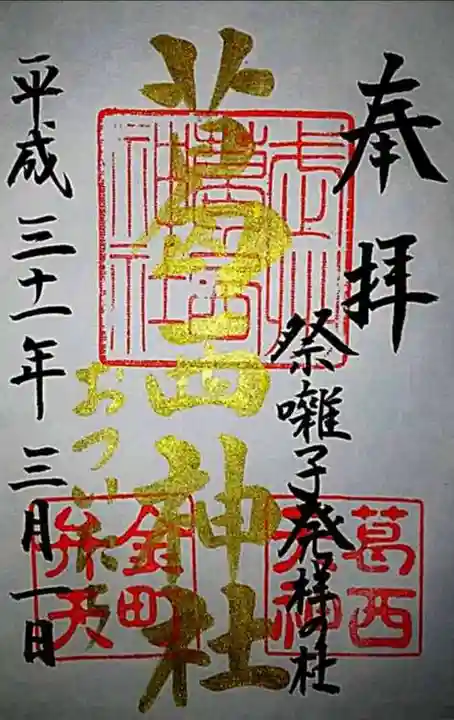 奉拝
祭囃子発祥の杜
葛西神社
おついたち
平成三十一年三月一日
武州葛西神社
葛西天神
金町弁天